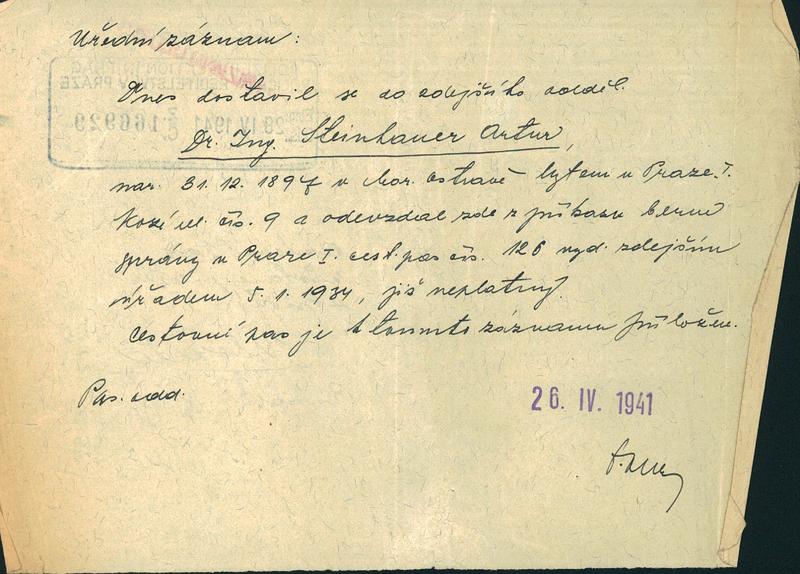 Úřední záznam:
Dnes dostavil se do zdejšího odděl.
Dr. Ing. Steinhauer Artur,
nar. 31.12.1897 v Mor. Ostravě bytem v Praze I.
Kozí ul. čís. 9 a odevzdal zde z příkazu berní
správy v Praze I. cest. pas čís. 126 vyd. zdejším
úřadem 5.1.1934, již neplatný.
Cestovní pas je k tomuto záznamu přiložen.
Pas. odd.
26. IV. 1941
28.IV.1941 č 166929